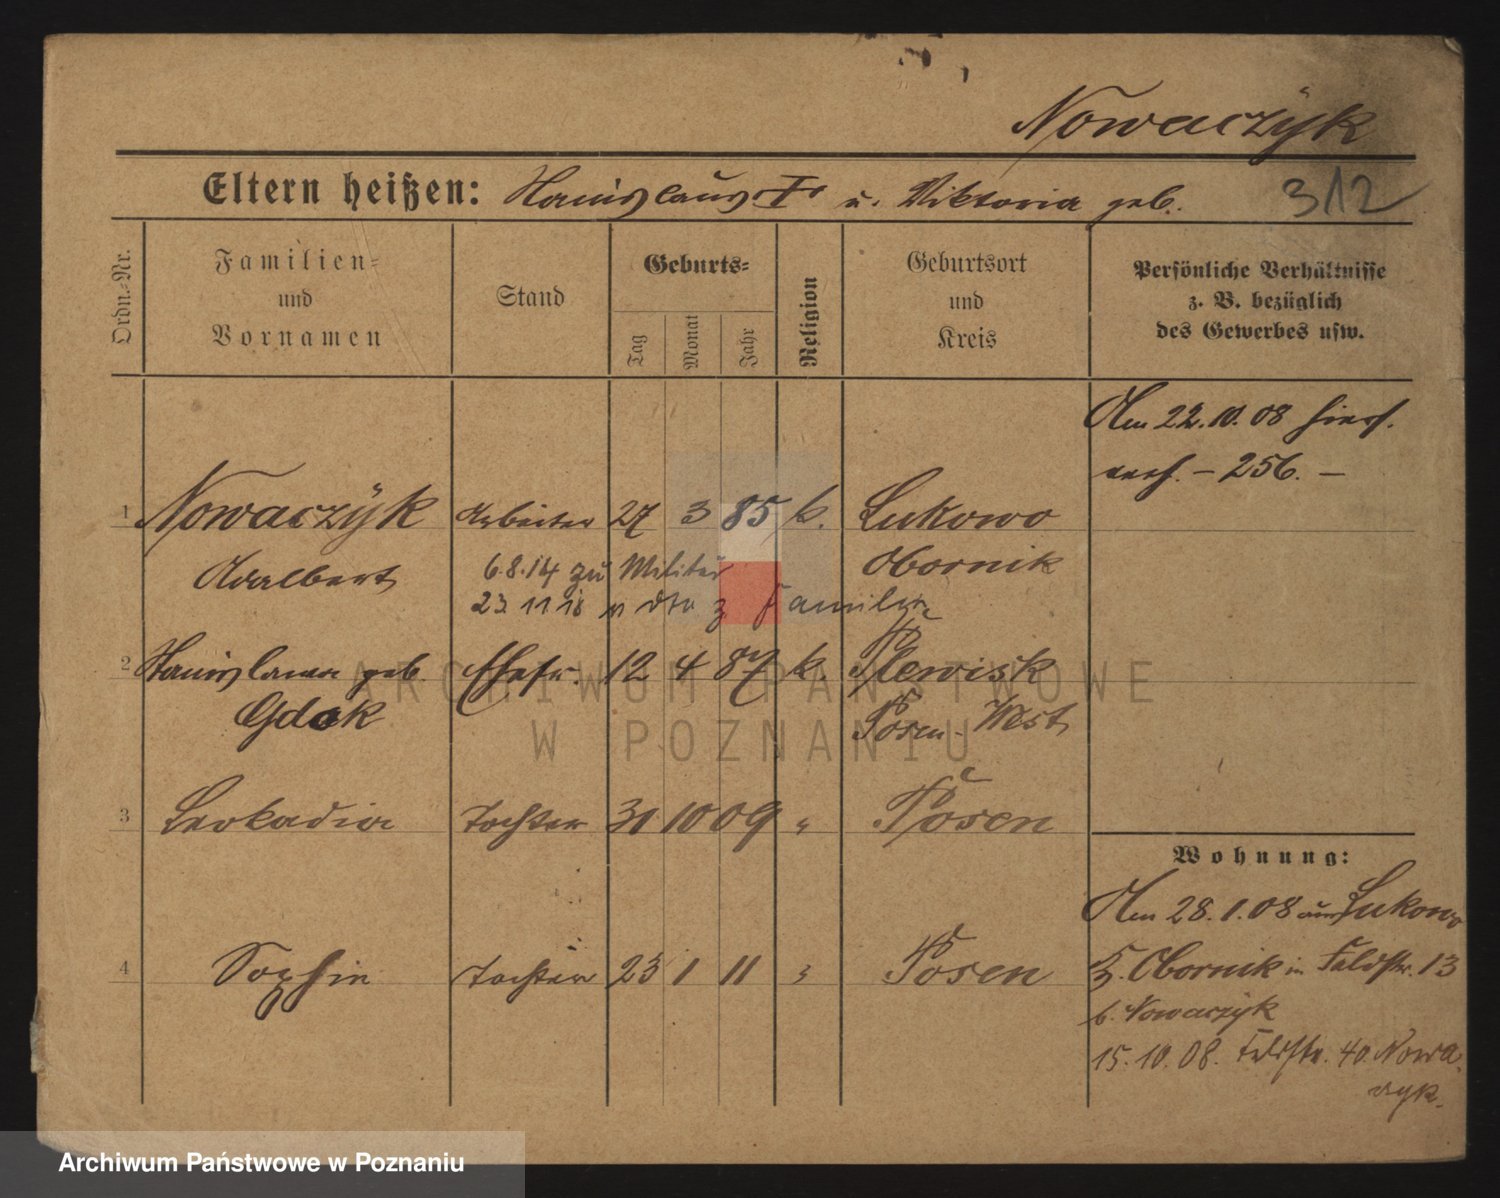 Nowaczÿk
Eltern heißen: Stanislaus u. Viktoria geb. 312
Ordn.-Nr.
Familien- und Vornamen
Stand
Geburts-
Tag Monat Jahr
Religion
Geburtsort und Kreis
Persönliche Verhältnisse z. B. bezüglich des Gewerbes usw.
Am 22.10.08 hiers.
verh. – 256. –
1 Nowaczÿk Arbeiter 27 3 85 k. Lukowo
Adalbert Obornik
6.8.14 zu Militär
23 11 18 z Familie
2 Stanislawa geb. Ehefr. 12 4 87 k. Plewisk
Gdak Posen-West
3 Leokadia Tochter 31 10 09 " Posen
4 Sophie Tochter 23 1 11 " Posen
Wohnung:
Am 28.1.08 aus Lukowo
Obornik in Feldstr. 13
b. Nowaczÿk
15.10.08. Feldstr. 40. Nowa
czyk.
ARCHIWUM PAŃSTWOWE
W POZNANIU
Archiwum Państwowe w Poznaniu